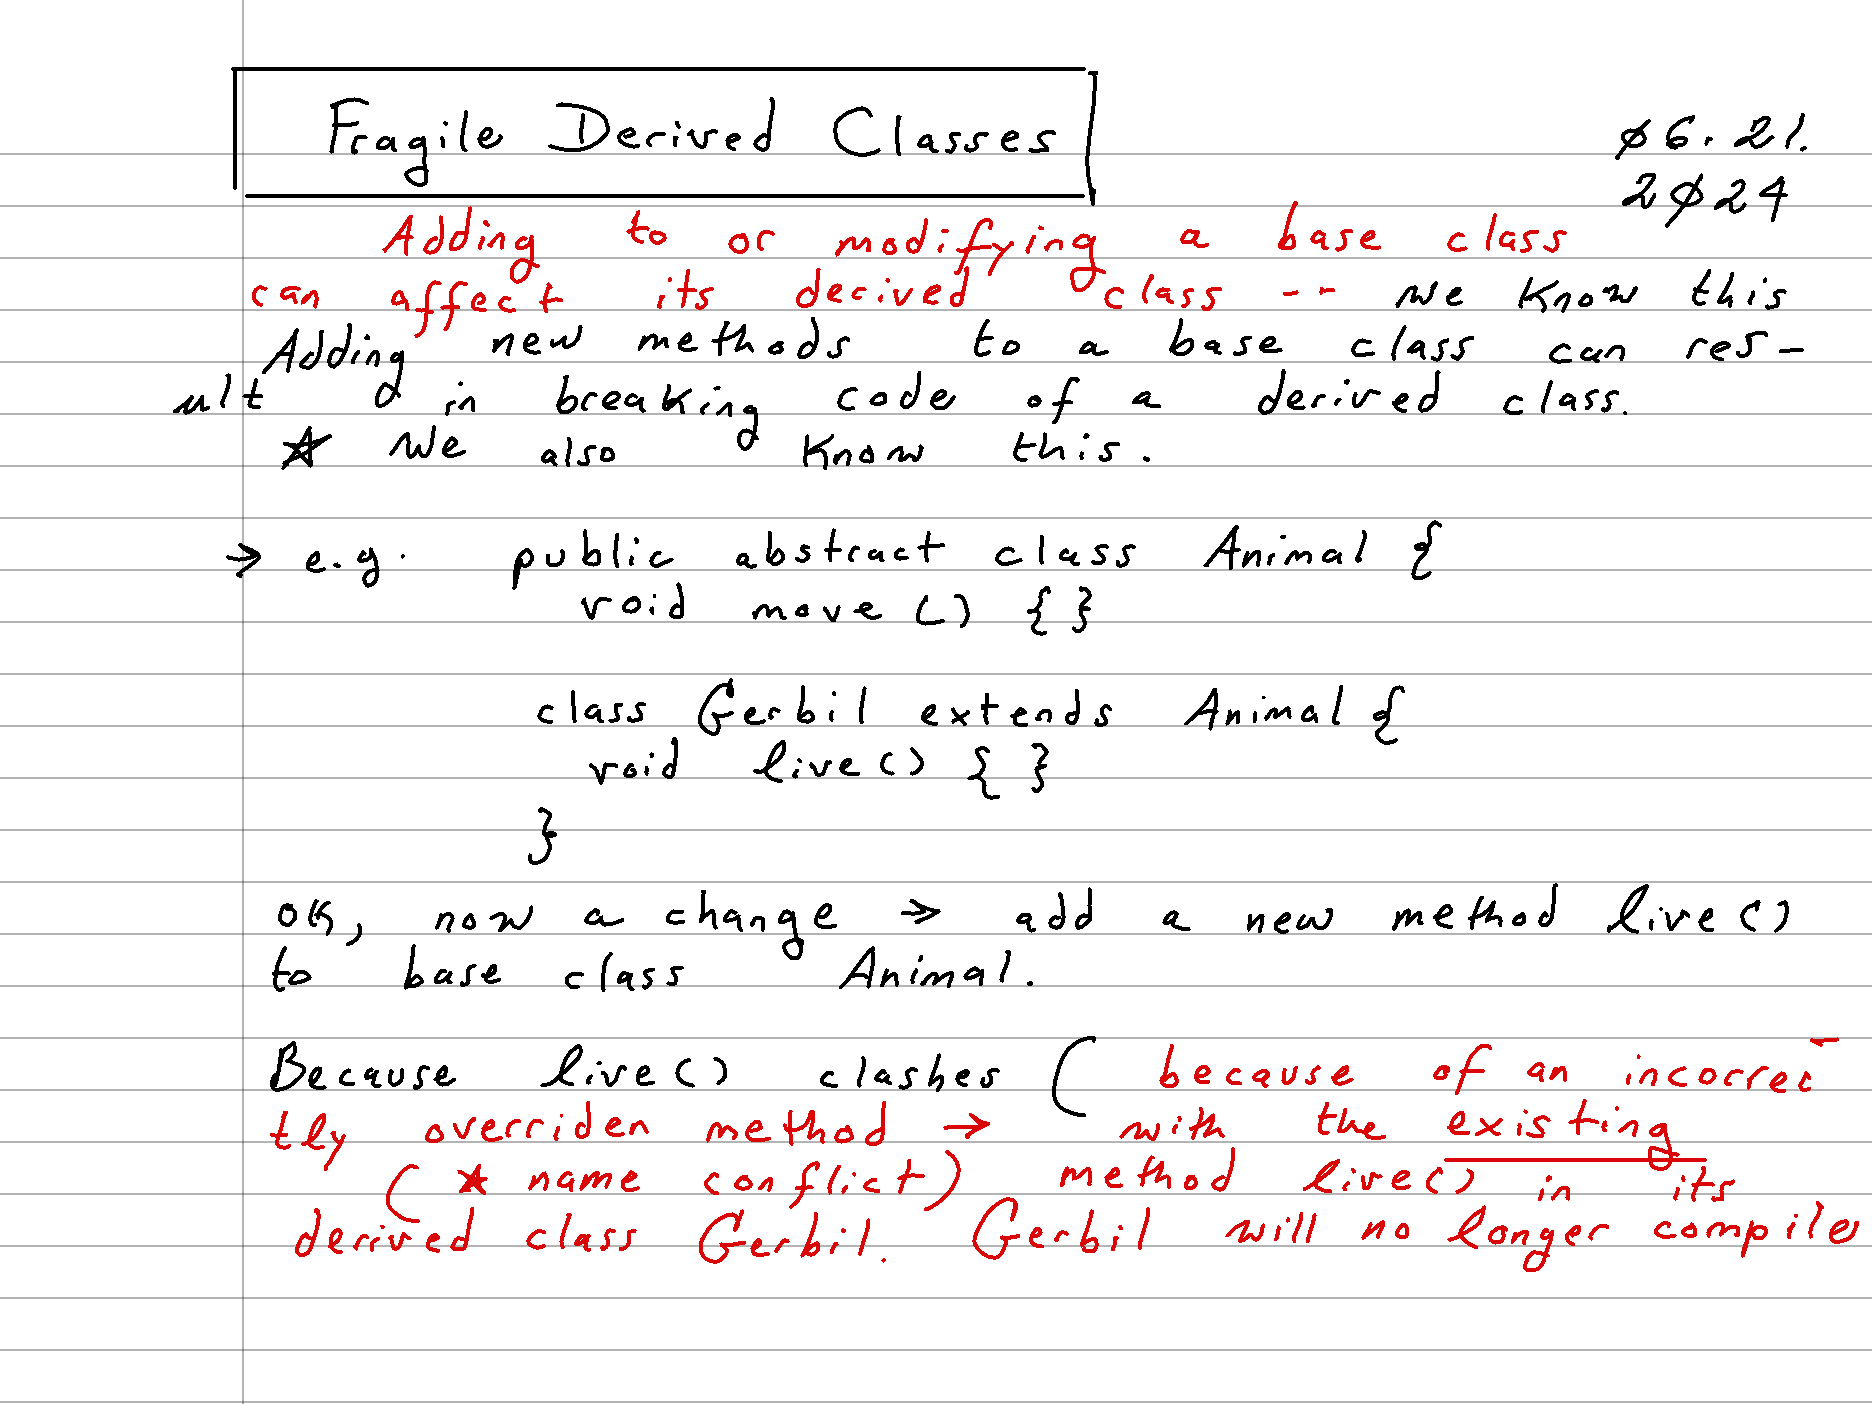 Fragile Derived Classes
ø6.21.
2ø24
Adding to or modifying a base class
can affect its derived class -- we know this
Adding new methods to a base class can res-
ult in breaking code of a derived class.
★ we also know this.
→ e.g. public abstract class Animal {
void move () { }
class Gerbil extends Animal {
void live() { }
}
OK, now a change → add a new method live()
to base class Animal.
Because live() clashes ( because of an incorrec-
tly overriden method → with the existing
(★ name conflict) method live() in its
derived class Gerbil. Gerbil will no longer compile